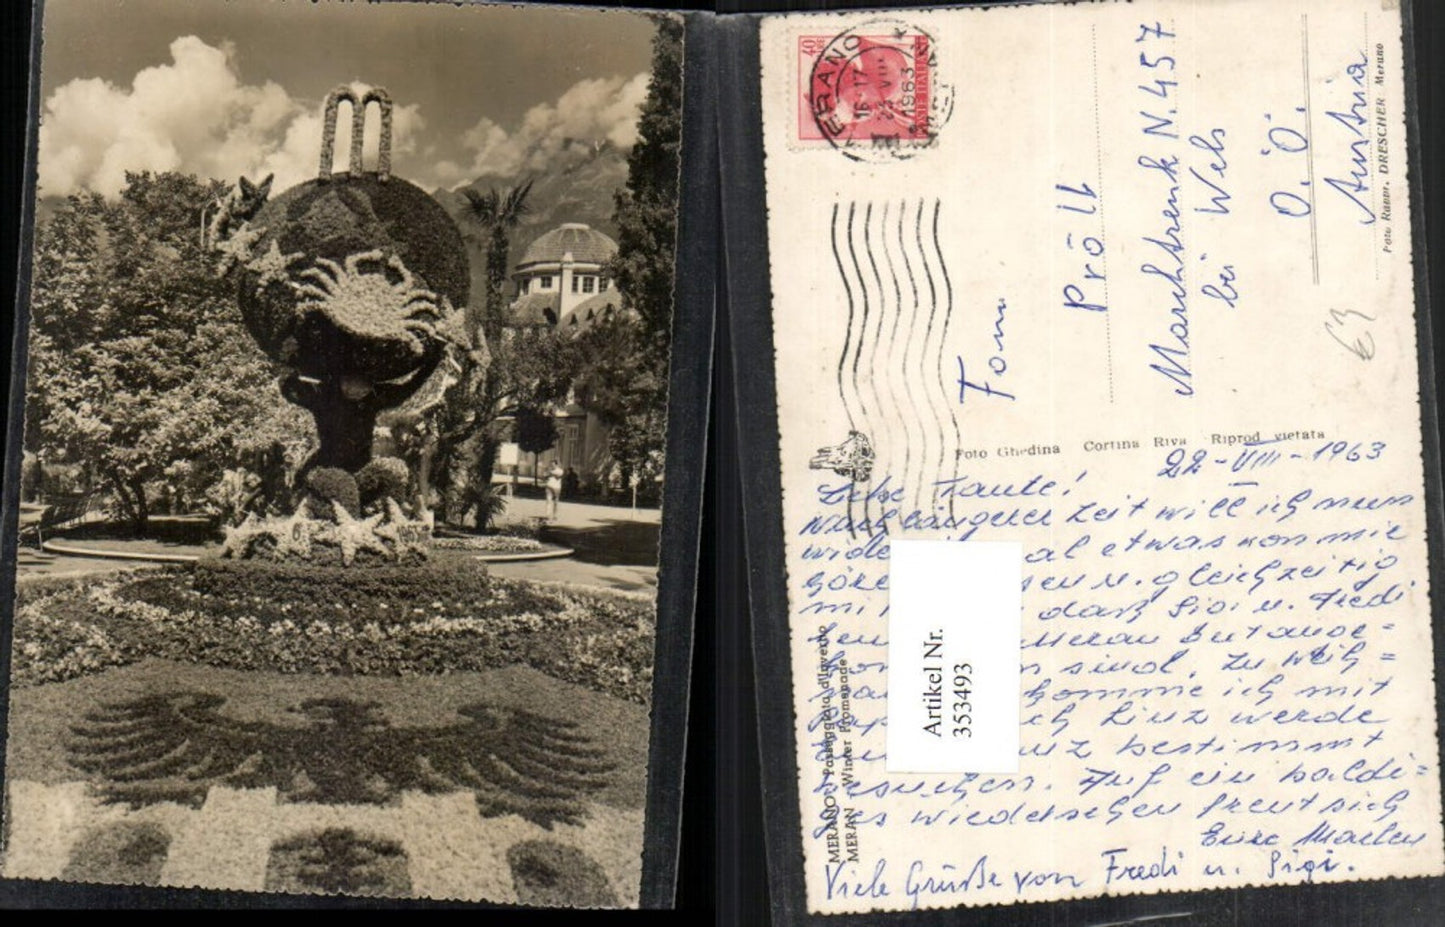 40
MERANO
16-17
22 VIII
1963
POSTE ITALIANE
Fam
Pröll
Marchtrenk N. 457
bei Wels
O. Ö.
Austria
Foto Rappr. DRESCHER Merano
€3
Foto Ghedina Cortina Riva Riprod. vietata
22-VIII-1963
Liebe Tante!
Nach längerer Zeit will ich nun
wide al etwas von mir
hören sen u. gleichzeitig
mi daß Sigi u. Fredi
Meran
sind. Zu Weih=
komme ich mit
ch Linz werde
bestimmt
besuchen. Auf ein baldi=
ges wiedersehen freut sich
Eure
Viele Grüße von Fredi u. Sigi.
MERANO - Passeggiata d'Inverno
MERAN - Winter Promenade
Artikel Nr.
353493